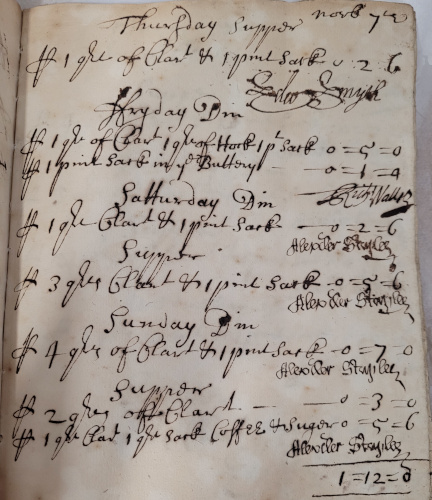 Thursday Supper Novb 7th
P 1 qrt of Clart & 1 pint Sack 0 2 6
Fryday Din
P 1 qrt of Clart 1 qrt of Hock 1 pt Sack 0=5=0
P 1 pint Sack in ye Buttery 0=1=4
Satturday Din
P 1 qrt Clart & 1 pint Sack 0=2=6
Alexdler
Supper
P 3 qrts Clart & 1 pint Sack 0=5=6
Alexdler
Sunday Din
P 4 qrts of Clart & 1 pint Sack 0=7=0
Alexdler
Supper
P 2 qrts off Clart 0=3=0
P 1 qrt Clart 1 qrt Sack Coffee & Suger 0=5=6
Alexdler
1=12=8